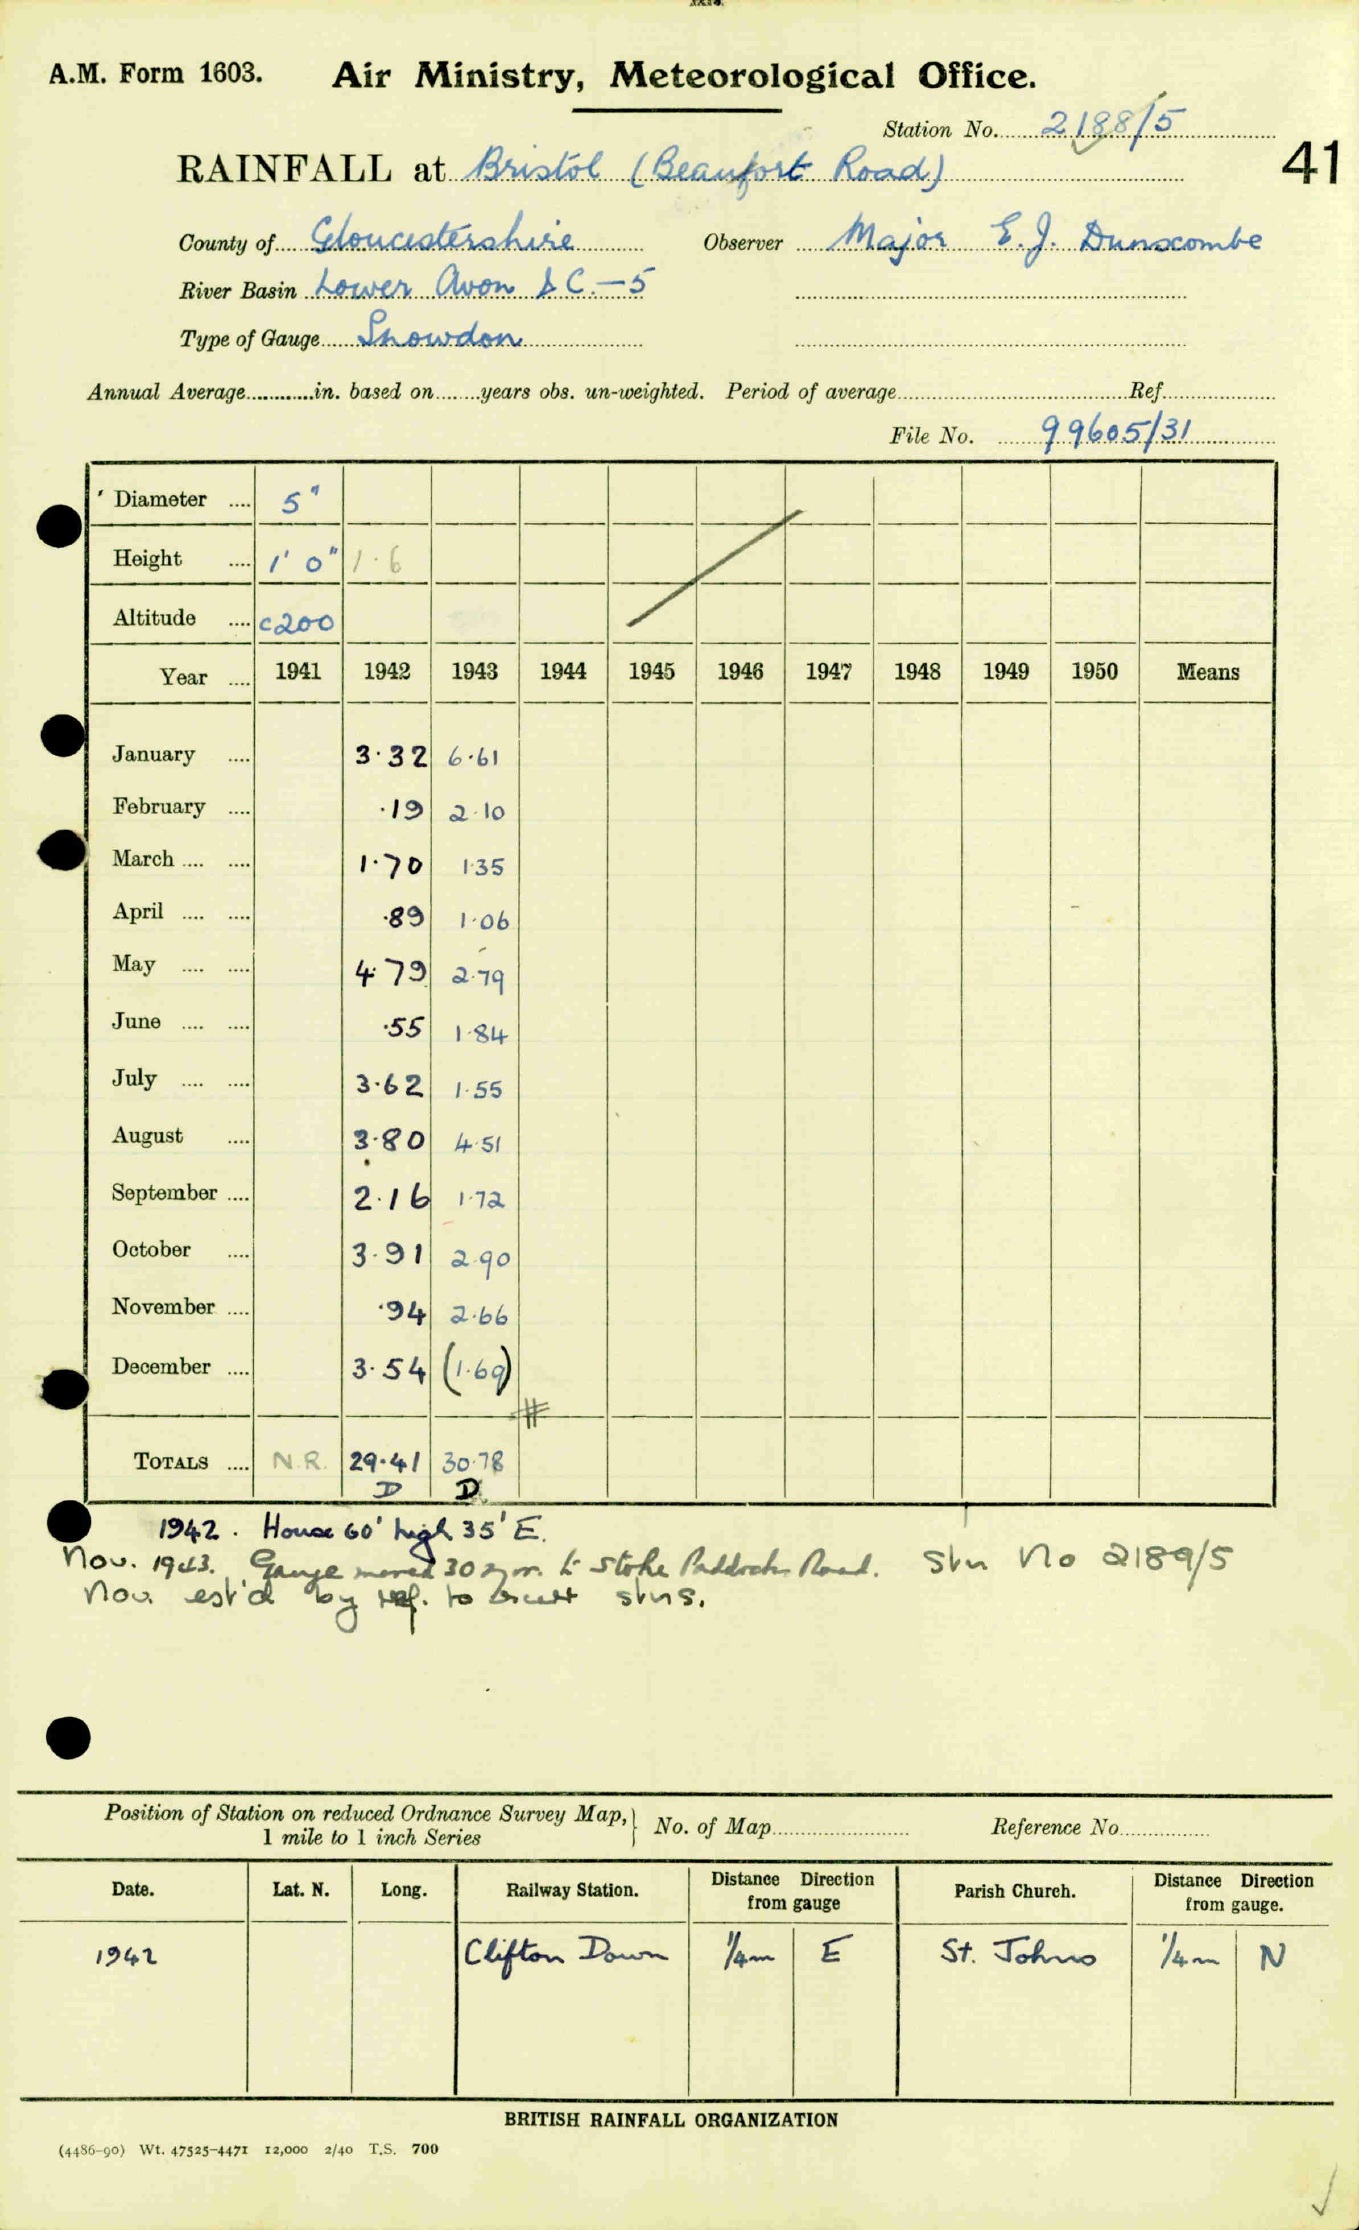 A.M. Form 1603. Air Ministry, Meteorological Office.
Station No. 2188/5
RAINFALL at Bristol (Beaufort Road)
41
County of Gloucestershire Observer Major E.J. Dunscombe
River Basin Lower Avon & C.-5
Type of Gauge Snowdon
Annual Average in. based on years obs. un-weighted. Period of average Ref.
File No. 99605/31
Diameter 5"
Height 1' 0" 1·6
Altitude c200
Year 1941 1942 1943 1944 1945 1946 1947 1948 1949 1950 Means
January 3·32 6·61
February ·19 2·10
March 1·70 1·35
April ·89 1·06
May 4·79 2·79
June ·55 1·84
July 3·62 1·55
August 3·80 4·51
September 2·16 1·72
October 3·91 2·90
November ·94 2·66
December 3·54 (1·69)
#
TOTALS N.R. 29·41 30·78
D D
1942. House 60' high 35' E.
Nov. 1943. Gauge moved 30 to Stoke Paddock Road. Stn No 2189/5
Nov. est'd by ref. to stns.
Position of Station on reduced Ordnance Survey Map, 1 mile to 1 inch Series No. of Map Reference No.
Date. Lat. N. Long. Railway Station. Distance Direction from gauge Parish Church. Distance Direction from gauge.
1942 Clifton Down 1/4m E St. Johns 1/4m N
BRITISH RAINFALL ORGANIZATION
(4486-90) Wt. 47525-4471 12,000 2/40 T.S. 700